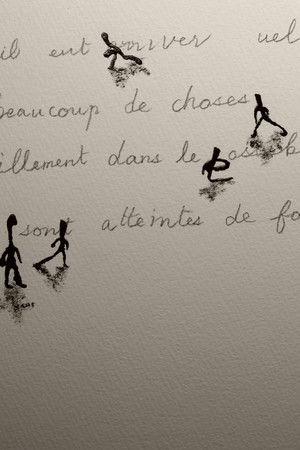 il eut
beaucoup de choses
illement dans le
sont atteintes de fo